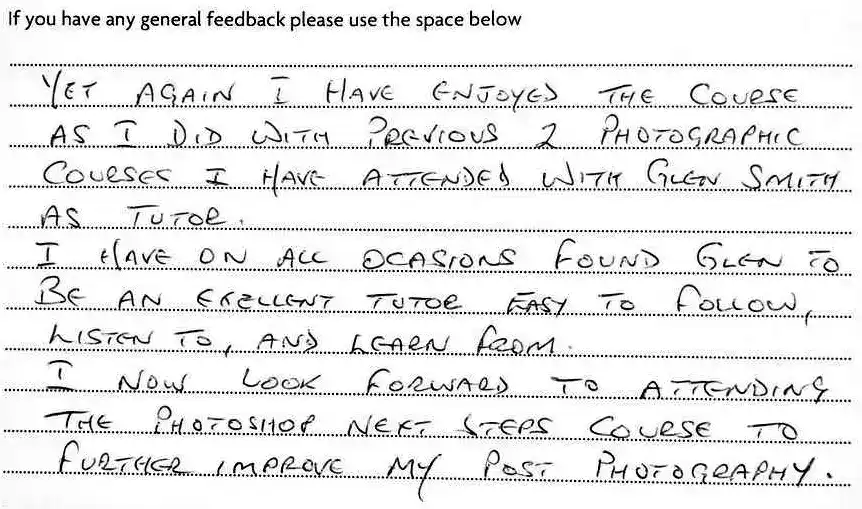 If you have any general feedback please use the space below
YET AGAIN I HAVE ENJOYED THE COURSE
AS I DID WITH PREVIOUS 2 PHOTOGRAPHIC
COURSES I HAVE ATTENDED WITH GLEN SMITH
AS TUTOR.
I HAVE ON ALL OCASIONS FOUND GLEN TO
BE AN EXELLENT TUTOR EASY TO FOLLOW,
LISTEN TO, AND LEARN FROM.
I NOW LOOK FORWARD TO ATTENDING
THE PHOTOSHOP NEXT STEPS COURSE TO
FURTHER IMPROVE MY POST PHOTOGRAPHY.